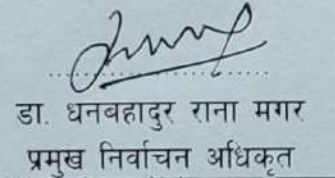 डा. धनबहादुर राना मगर
प्रमुख निर्वाचन अधिकृत